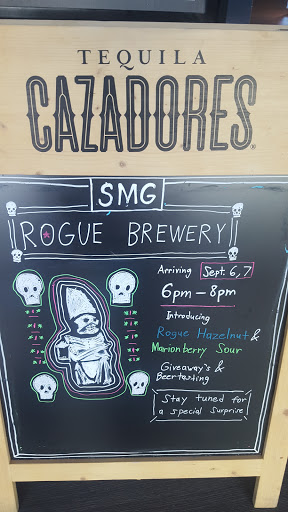 TEQUILA
CAZADORES®
SMG
ROGUE BREWERY
Arriving Sept. 6,7
6pm-8pm
Introducing
Rogue Hazelnut &
Marionberry Sour
Giveaway's &
Beertasting
Stay tuned for
a special surprise